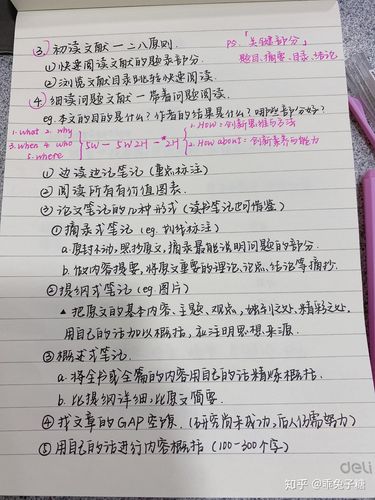 ③ 初读文献一二八原则.
PS.「关键部分」
题目、摘要、目录、结论
① 快速阅读文献的题录部分
② 浏览文献目录跳转快速阅读.
④ 细读问题文献一带着问题阅读.
eg.本文的目的是什么?作者的结果是什么?哪些部分好?
1. what 2. why
3. when 4. who
5. where
5W-5W2H-*2H
1. How:创新思维与方法
2. How about:创新素养与能力
① 边读边记笔记(重点标注)
② 阅读所有有价值图表.
③ 论文笔记的几种形式(读书笔记可借鉴)
① 摘录式笔记(eg.划线标注)
a.原封不动,照抄原文,摘录最能说明问题的部分.
b.做内容提要,将原文重要的理论、论点、结论等摘抄.
② 提纲式笔记(eg.图片)
▲ 把原文的基本内容、主题、观点,独到之处,精彩之处,
用自己的话加以概括,应注明思想来源.
③ 概述式笔记.
a.将全书或全篇的内容用自己的话精炼概括.
b.比提纲详细,比原文简要.
④ 找文章的GAP空隙.(研究尚未成功,后人仍需努力)
⑤ 用自己的话进行内容概括(100-300个字)
deli
知乎 @乖兔子糖